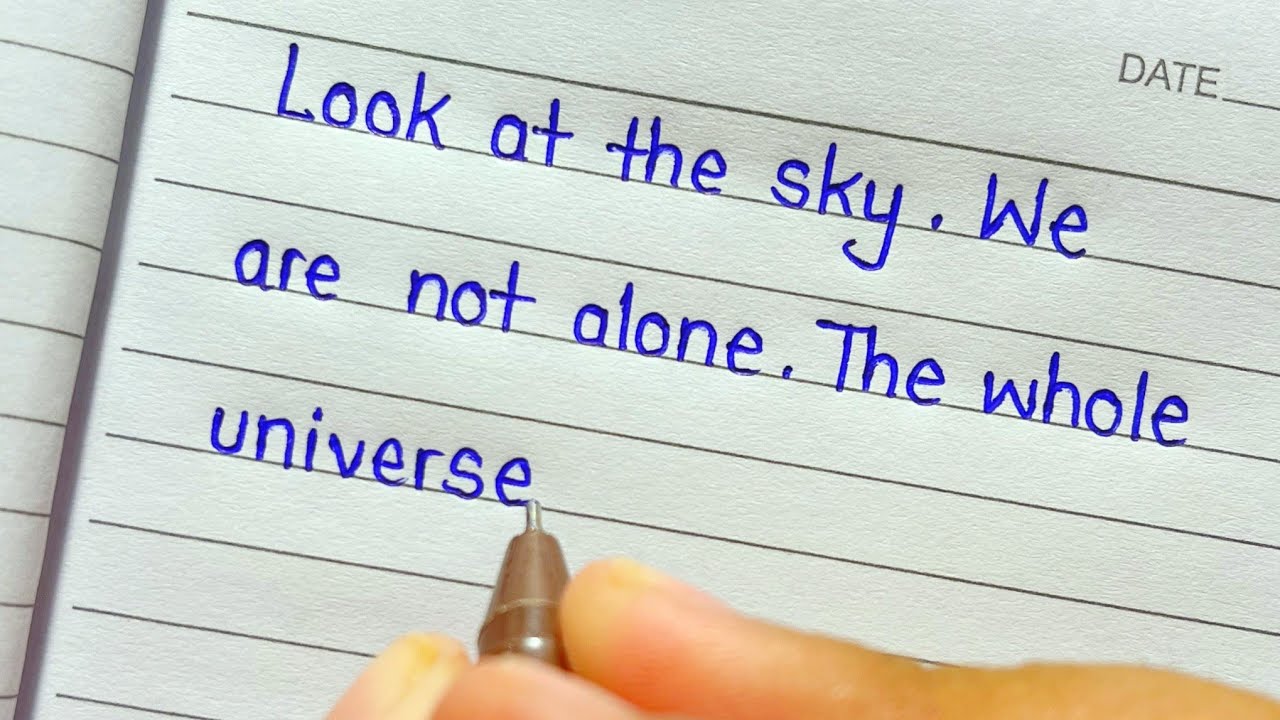 DATE
Look at the sky. We
are not alone. The whole
universe